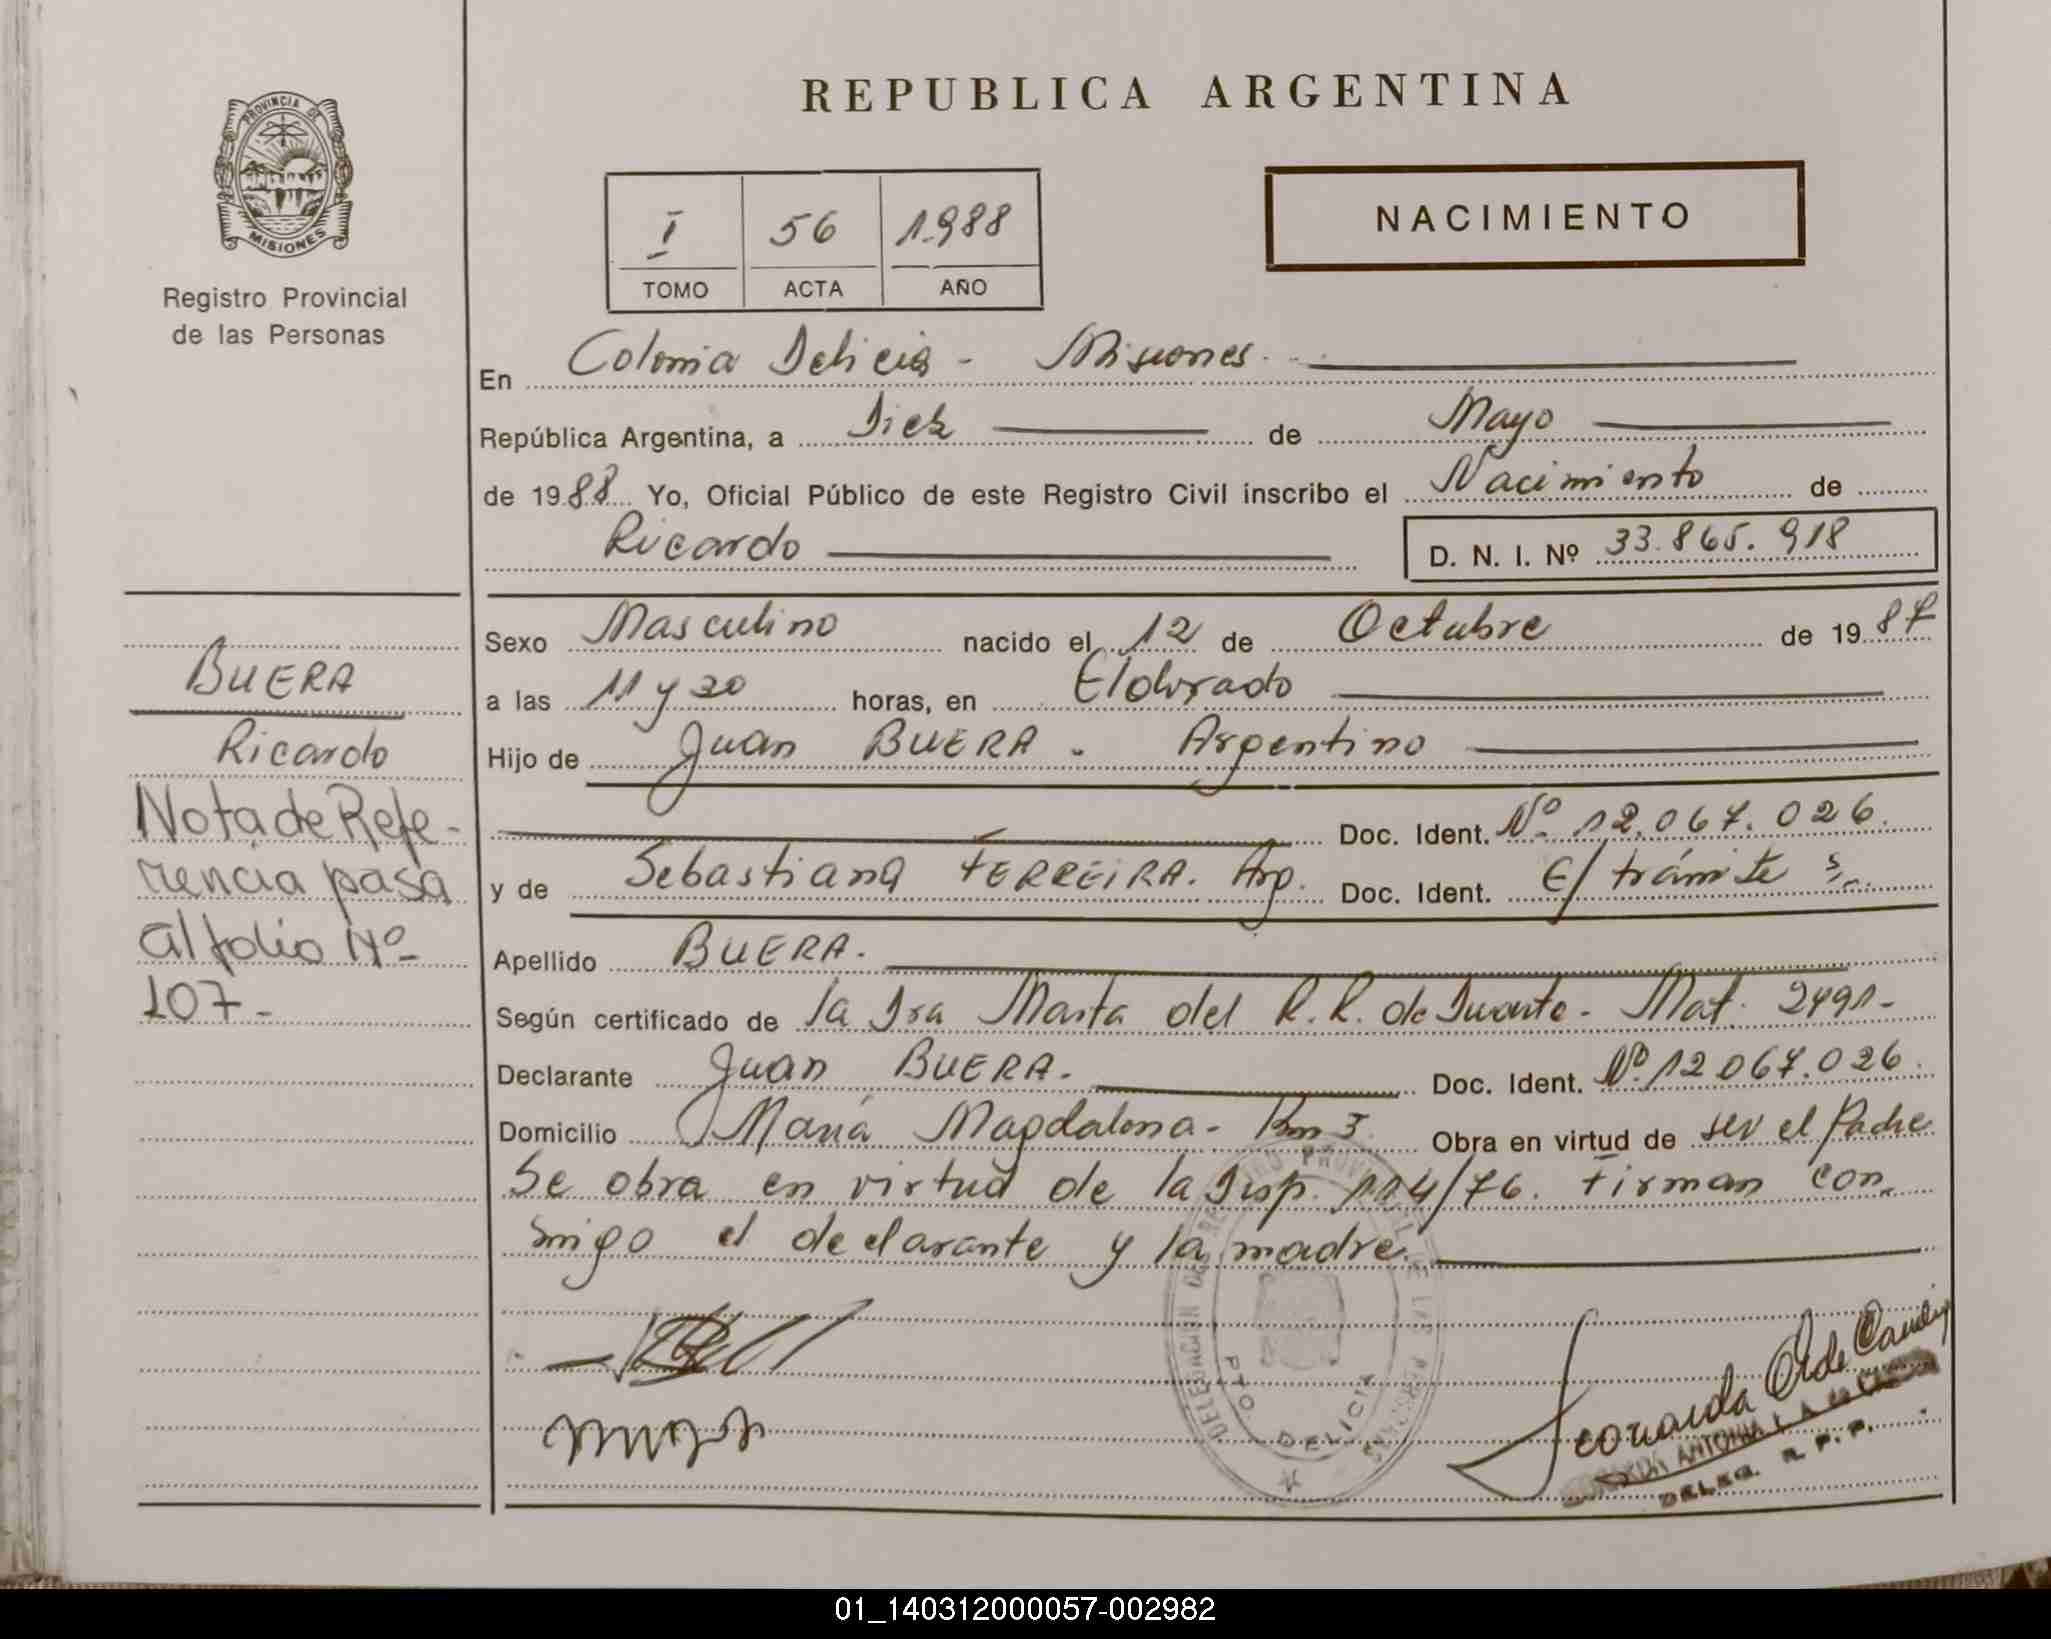 PROVINCIA DE
MISIONES
Registro Provincial
de las Personas
REPUBLICA ARGENTINA
I 56 1.988
TOMO ACTA AÑO
NACIMIENTO
En Colonia Delicia - Misiones.
República Argentina, a Diez de Mayo
de 1988 Yo, Oficial Público de este Registro Civil inscribo el Nacimiento de
Ricardo D. N. I. Nº 33.865.918
Sexo Masculino nacido el 12 de Octubre de 1987
a las 11 y 30 horas, en Eldorado
Hijo de Juan BUERA - Argentino
Doc. Ident. Nº 12.067.026.
y de Sebastiana FERREIRA. Arg. Doc. Ident. E/ trámite
Apellido BUERA.
Según certificado de la Dra Marta del R.R. de Duarte - Mat. 2491-
Declarante Juan BUERA. Doc. Ident. Nº 12.067.026.
Domicilio María Magdalena - Km 3 Obra en virtud de ser el Padre
Se obra en virtud de la Disp. 114/76. Firman con-
migo el declarante y la madre.
BUERA
Ricardo
Nota de Refe-
rencia pasa
al folio Nº
107-
DELEGACION DEL REGISTRO PROVINCIAL DE LAS PERSONAS
PTO. DELICIA
Leonarda
ANTONIA
DELEG. R. P. P.
01_140312000057-002982